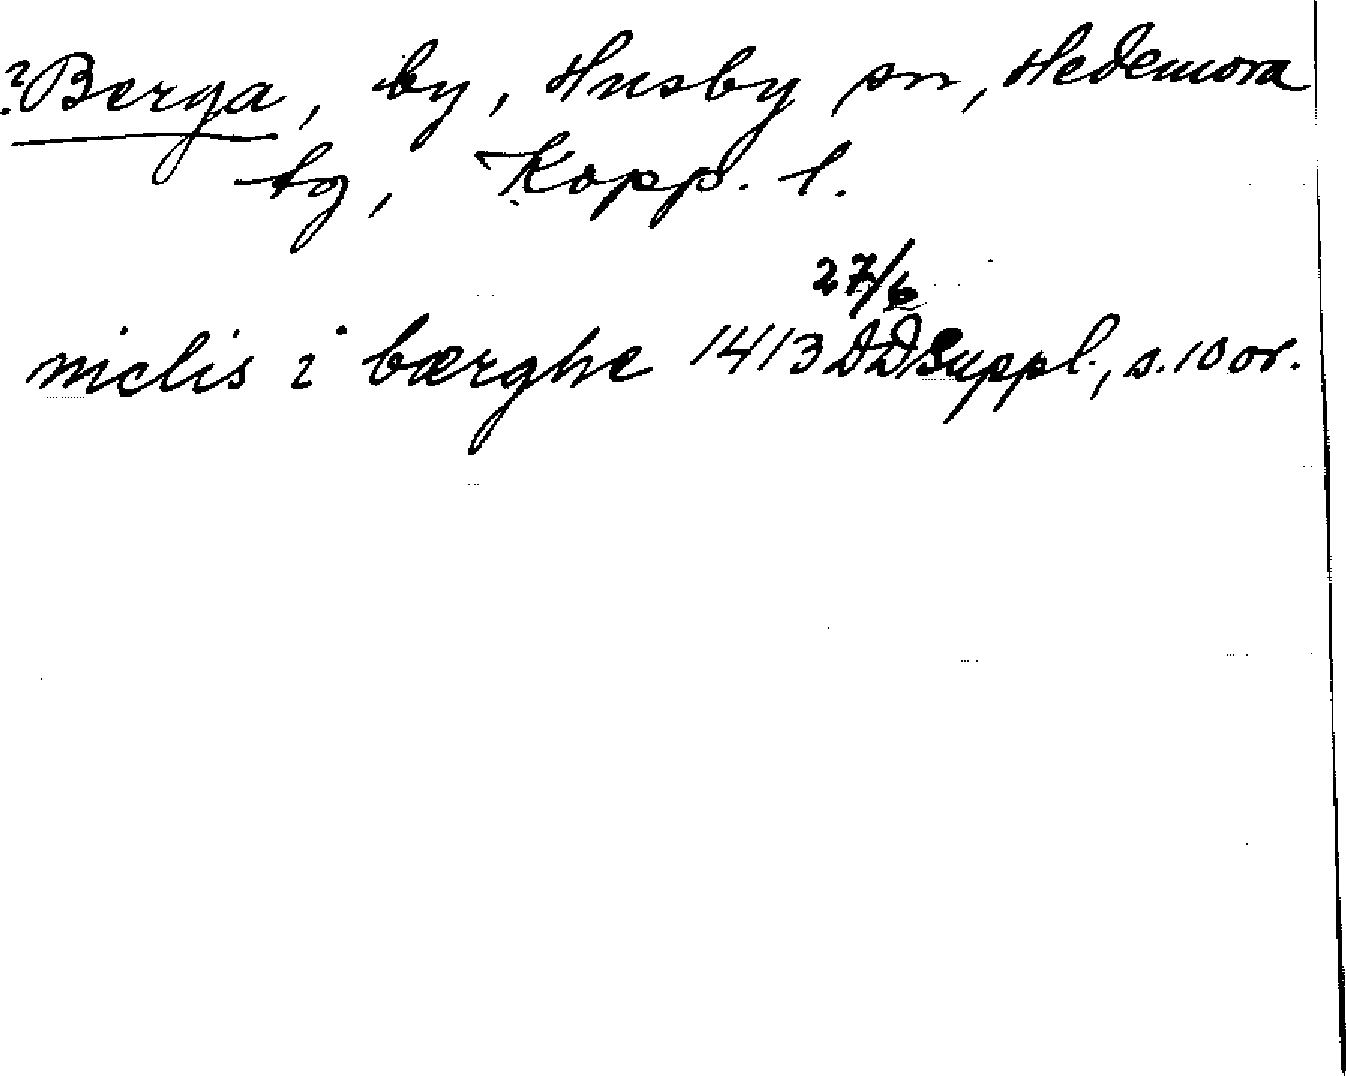 ?Berga, by, Husby sn, Hedemora
tg, Kopp. l.
niclis i bærghe 1413 27/6 DD Suppl., s. 10 or.